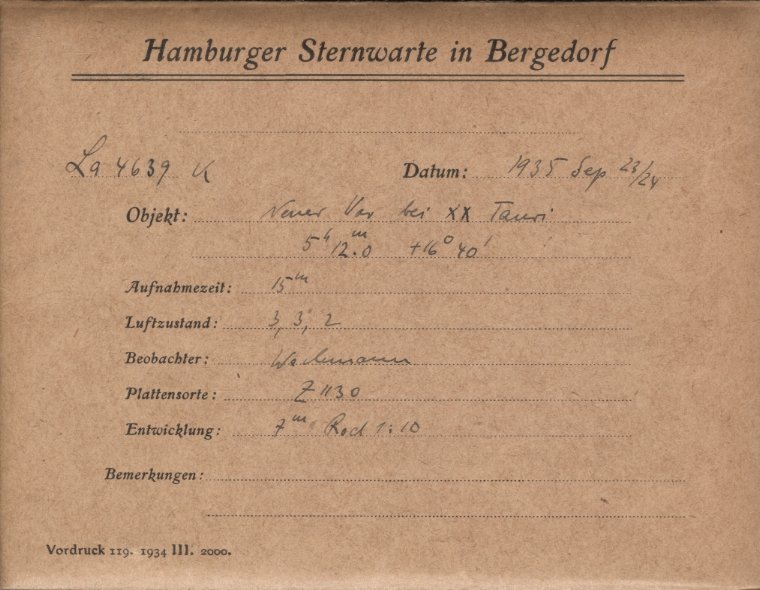 Hamburger Sternwarte in Bergedorf
La 4639 K Datum: 1935 Sep 23/24
Objekt: Neuer Var bei XX Tauri
5ʰ 12ᵐ.0 +16° 40'
Aufnahmezeit: 15ᵐ
Luftzustand: 3, 3, 2
Beobachter: Wachmann
Plattensorte: Z 1130
Entwicklung: 7ᵐ Rod 1:10
Bemerkungen:
Vordruck 119. 1934 III. 2000.